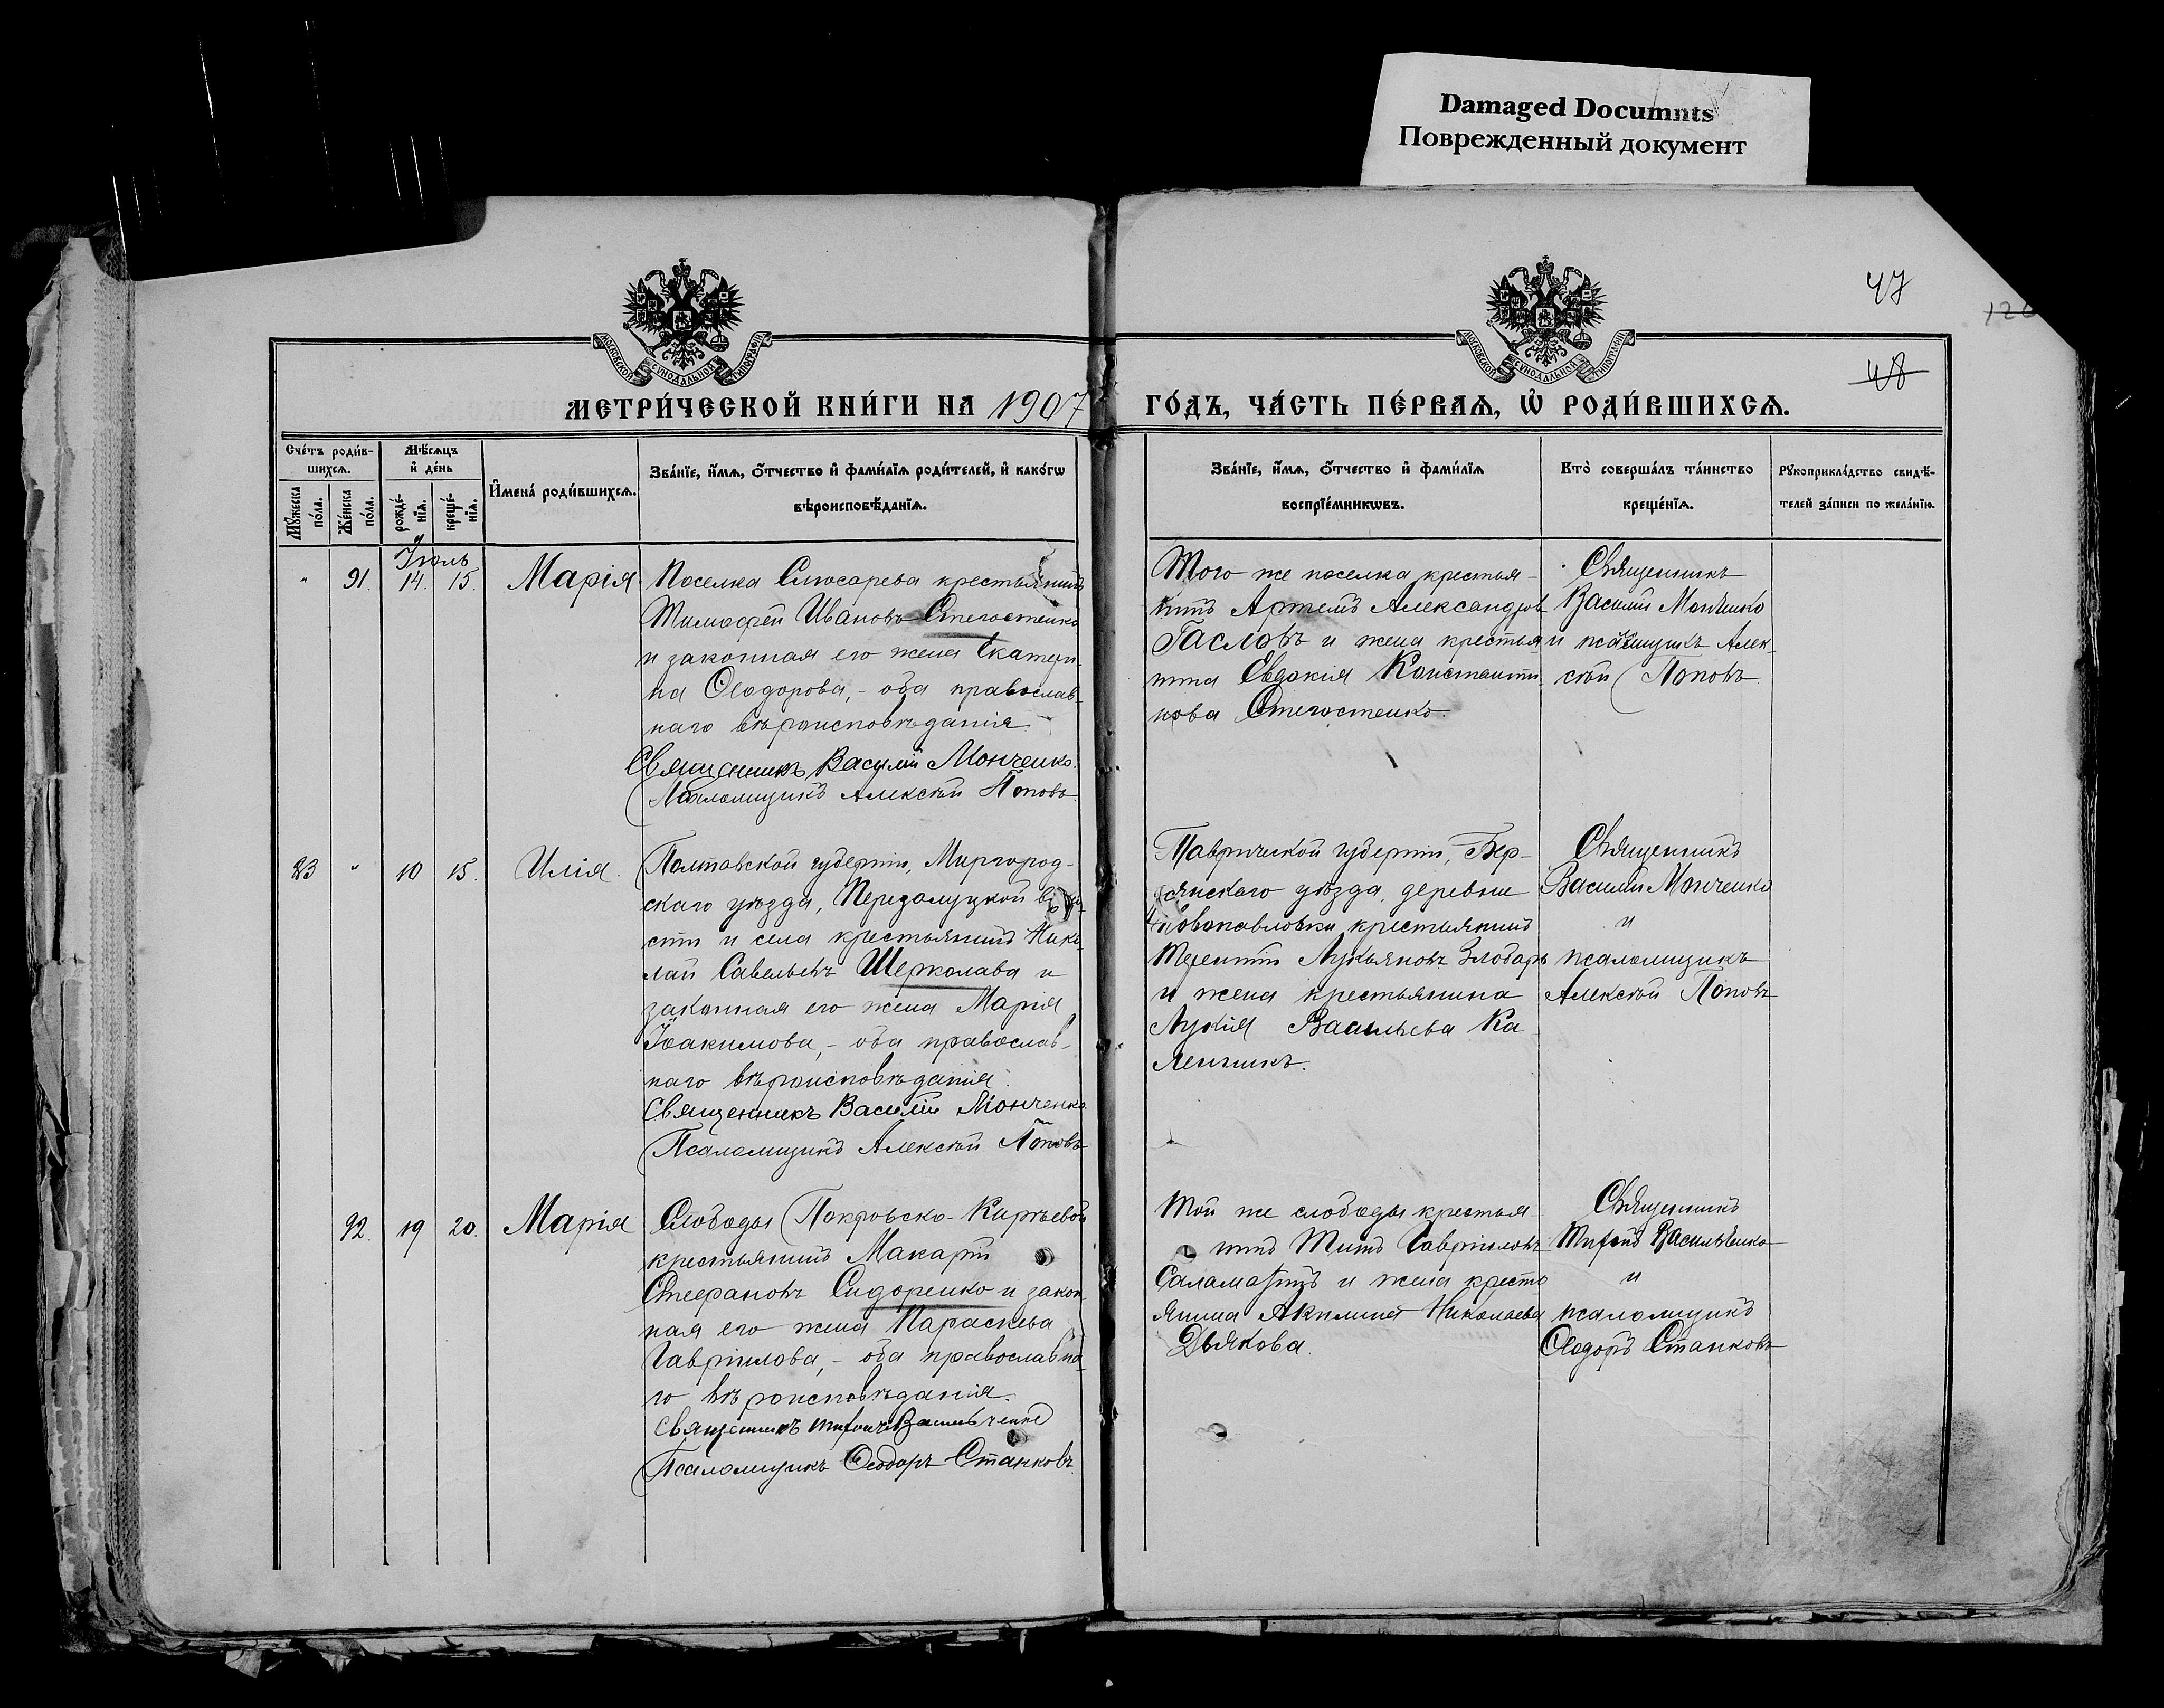 Damaged Documnts
Поврежденный документ
47
126
48
МОСКОВСКОЙ СѴНОДАЛЬНОЙ ТИПОГРАФІИ
МОСКОВСКОЙ СѴНОДАЛЬНОЙ ТИПОГРАФІИ
МЕТРИ́ЧЕСКОЙ КНИ́ГИ НА 1907 ГО́ДЪ, ЧА́СТЬ ПЕ́РВАѦ, Ѡ҆ РОДИ́ВШИХСѦ.
Сче́тъ роди́в-
шихсѧ.
Мꙋ́жеска по́ла.
Же́нска по́ла.
Мѣ́сѧцъ
и҆ де́нь
рожде́-
нїѧ.
креще́-
нїѧ.
И҆мена̀ роди́вшихсѧ.
Зва́нїе, и҆́мѧ, ѻ҆́тчество и҆ фами́лїѧ роди́телей, и҆ како́гѡ
вѣроисповѣ́данїѧ.
Зва́нїе, и҆́мѧ, ѻ҆́тчество и҆ фами́лїѧ
воспрїе́мникѡвъ.
Кто̀ соверша́лъ та́инство
креще́нїѧ.
Рꙋкоприкла́дство свидѣ́-
телей за́писи по жела́нїю.
Іюль
" 91. 14. 15. Марія
Поселка Слюсарева крестьянинъ
Тимофей Ивановъ Стегостенко
и законная его жена Екатери-
на Ѳеодорова, - оба православ-
наго вѣроисповѣданія.
Священникъ Василій Монченко.
Псаломщикъ Алексѣй Поповъ.
Того же поселка крестья-
нинъ Артемъ Александров
Гасловъ и жена крестья
нина Евдокія Константи-
нова Стегостенко.
Священникъ
Василій Монченко
и псаломщикъ Алек-
сѣй Поповъ.
83 " 10 15. Илія.
Полтавской губерніи, Миргород-
скаго уѣзда, Передолуцкой воло-
сти и села крестьянинъ Нико-
лай Савельевъ Шерколава и
законная его жена Марія
Іоакимова, - оба православ-
наго вѣроисповѣданія.
Священникъ Василій Монченко.
Псаломщикъ Алексѣй Поповъ
Таврической губерніи, Бер-
дянскаго уѣзда, деревни
Новопавловки крестьянинъ
Терентій Лукьяновъ Злобарь
и жена крестьянина
Лукія Васильева Ка-
ленникъ.
Священникъ
Василій Монченко
и
псаломщикъ
Алексѣй Поповъ
92. 19 20. Марія
Слободы Покровско-Киреевой
крестьянинъ Макарій
Стефановъ Сидоренко и закон-
ная его жена Параскева
Гавріилова, - оба православна-
го вѣроисповѣданія.
Священникъ Тифонъ Васильченко
Псаломщикъ Ѳеодоръ Станковъ.
Той же слободы крестья-
нинъ Титъ Гавріиловъ
Саламатинъ и жена кресть
янина Акилина Николаева
Дьякова.
Священникъ
Тифонъ Васильченко
и
псаломщикъ
Ѳеодоръ Станковъ